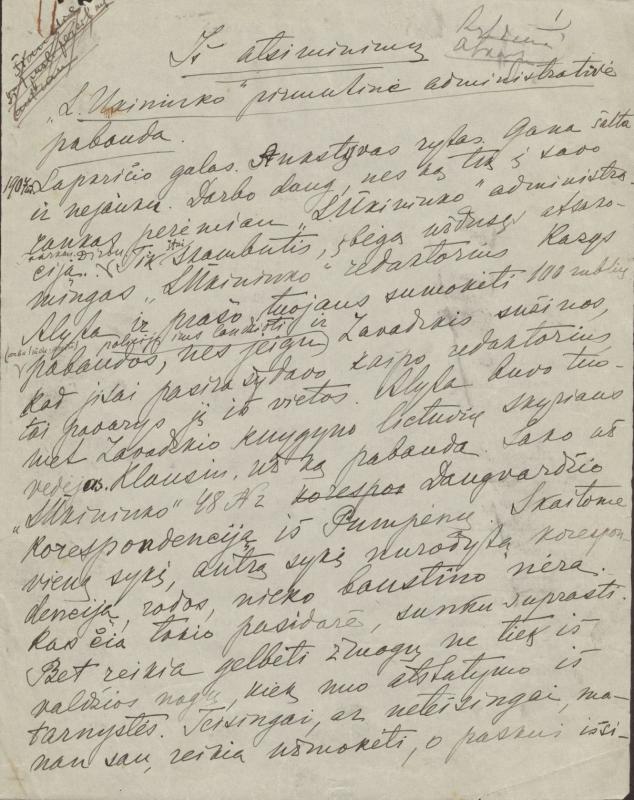 1
Iš atsiminimų
„L. Ūkininko" pirmutinė administrativė
pabauda.
1907 m. Lapkričio galas. Anksty­vas rytas. Gana šalta
ir nejauku. Darbo daug, nes ką tik į savo
rankas perėmiau „L.Ūkininko" administra-
ciją. Tik skambutis, įbėga uždusęs atsako-
mingas „L.Ūkininko" redaktorius Kazys
Alyta ir prašo tuojaus sumokėti 100 rublių
policija ims lankyti ir
pabaudos, nes jeigu Zavadzkis sužinos,
kad jisai pasirašydavo kaipo redaktorius,
tai pavarys jį iš vietos. Alyta buvo tuo-
met Zavadzkio knygyno lietuvių skyriaus
vedėjas. Klausiu, už ką pabauda. Sako už
„L.Ūkininko" 48 № korespon Daugvardžio
korespondenciją iš Pumpėnų. Skaitome
vieną sykį, antrą sykį nurodytą korespon-
denciją, rodos, nieko baustino nėra.
Kas čia tokio pasidarė, sunku suprasti.
Bet reikia gelbėti žmogų ne tiek iš
valdžios nagų, kiek nuo atstatymo iš
tarnystės. Teisingai, ar neteisingai, ma-
nau sau, reikia užmokėti, o paskui išsi-